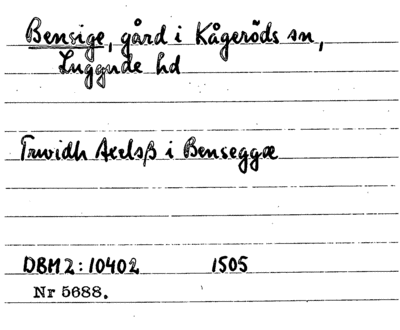 Bensige, gård i Kågeröds sn,
Luggude hd
Truvidh Axelsß i Benseggæ
DBM2:10402 1505
Nr 5688.